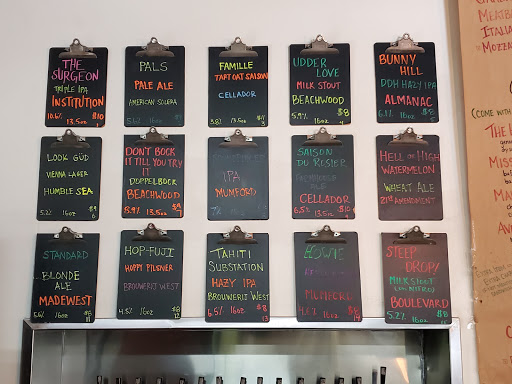 THE
SURGEON
TRIPLE IPA
INSTITUTION
10.6% $10
13.5oz
PALS
PALE ALE
AMERICAN SOLERA
5.6%
FAMILLE
TART OAT SAISON
CELLADOR
3.8% 13.5oz
UDDER
LOVE
MILK STOUT
BEACHWOOD
5.9% $8
BUNNY
HILL
DDH HAZY IPA
ALMANAC
6.1% 16oz $8
LOOK GÜD
VIENNA LAGER
HUMBLE SEA
5.2% 16oz
DON'T BOCK
IT TILL YOU TRY
IT
DOPPELBOCK
BEACHWOOD
8.9% 13.5oz
IPA
MUMFORD
SAISON
DU ROSIER
FARMHOUSE
ALE
CELLADOR
6.5% 13.5oz $10
HELL OR HIGH
WATERMELON
WHEAT ALE
21ST AMENDMENT
STANDARD
BLONDE
ALE
MADEWEST
5.6% 16oz $8
11
HOP-FUJI
HOPPY PILSNER
BROUWERIJ WEST
4.5% 16oz $8
12
TAHITI
SUBSTATION
HAZY IPA
BROUWERIJ WEST
6.5% 16oz $8
13
MUMFORD
16oz $8
14
STEEP
DROP!
MILK STOUT
(ON NITRO)
BOULEVARD
5.2% 16oz $8
MEATBA
ITALIA
MOZZA
(COME WITH
THE
MISS
MA
AV